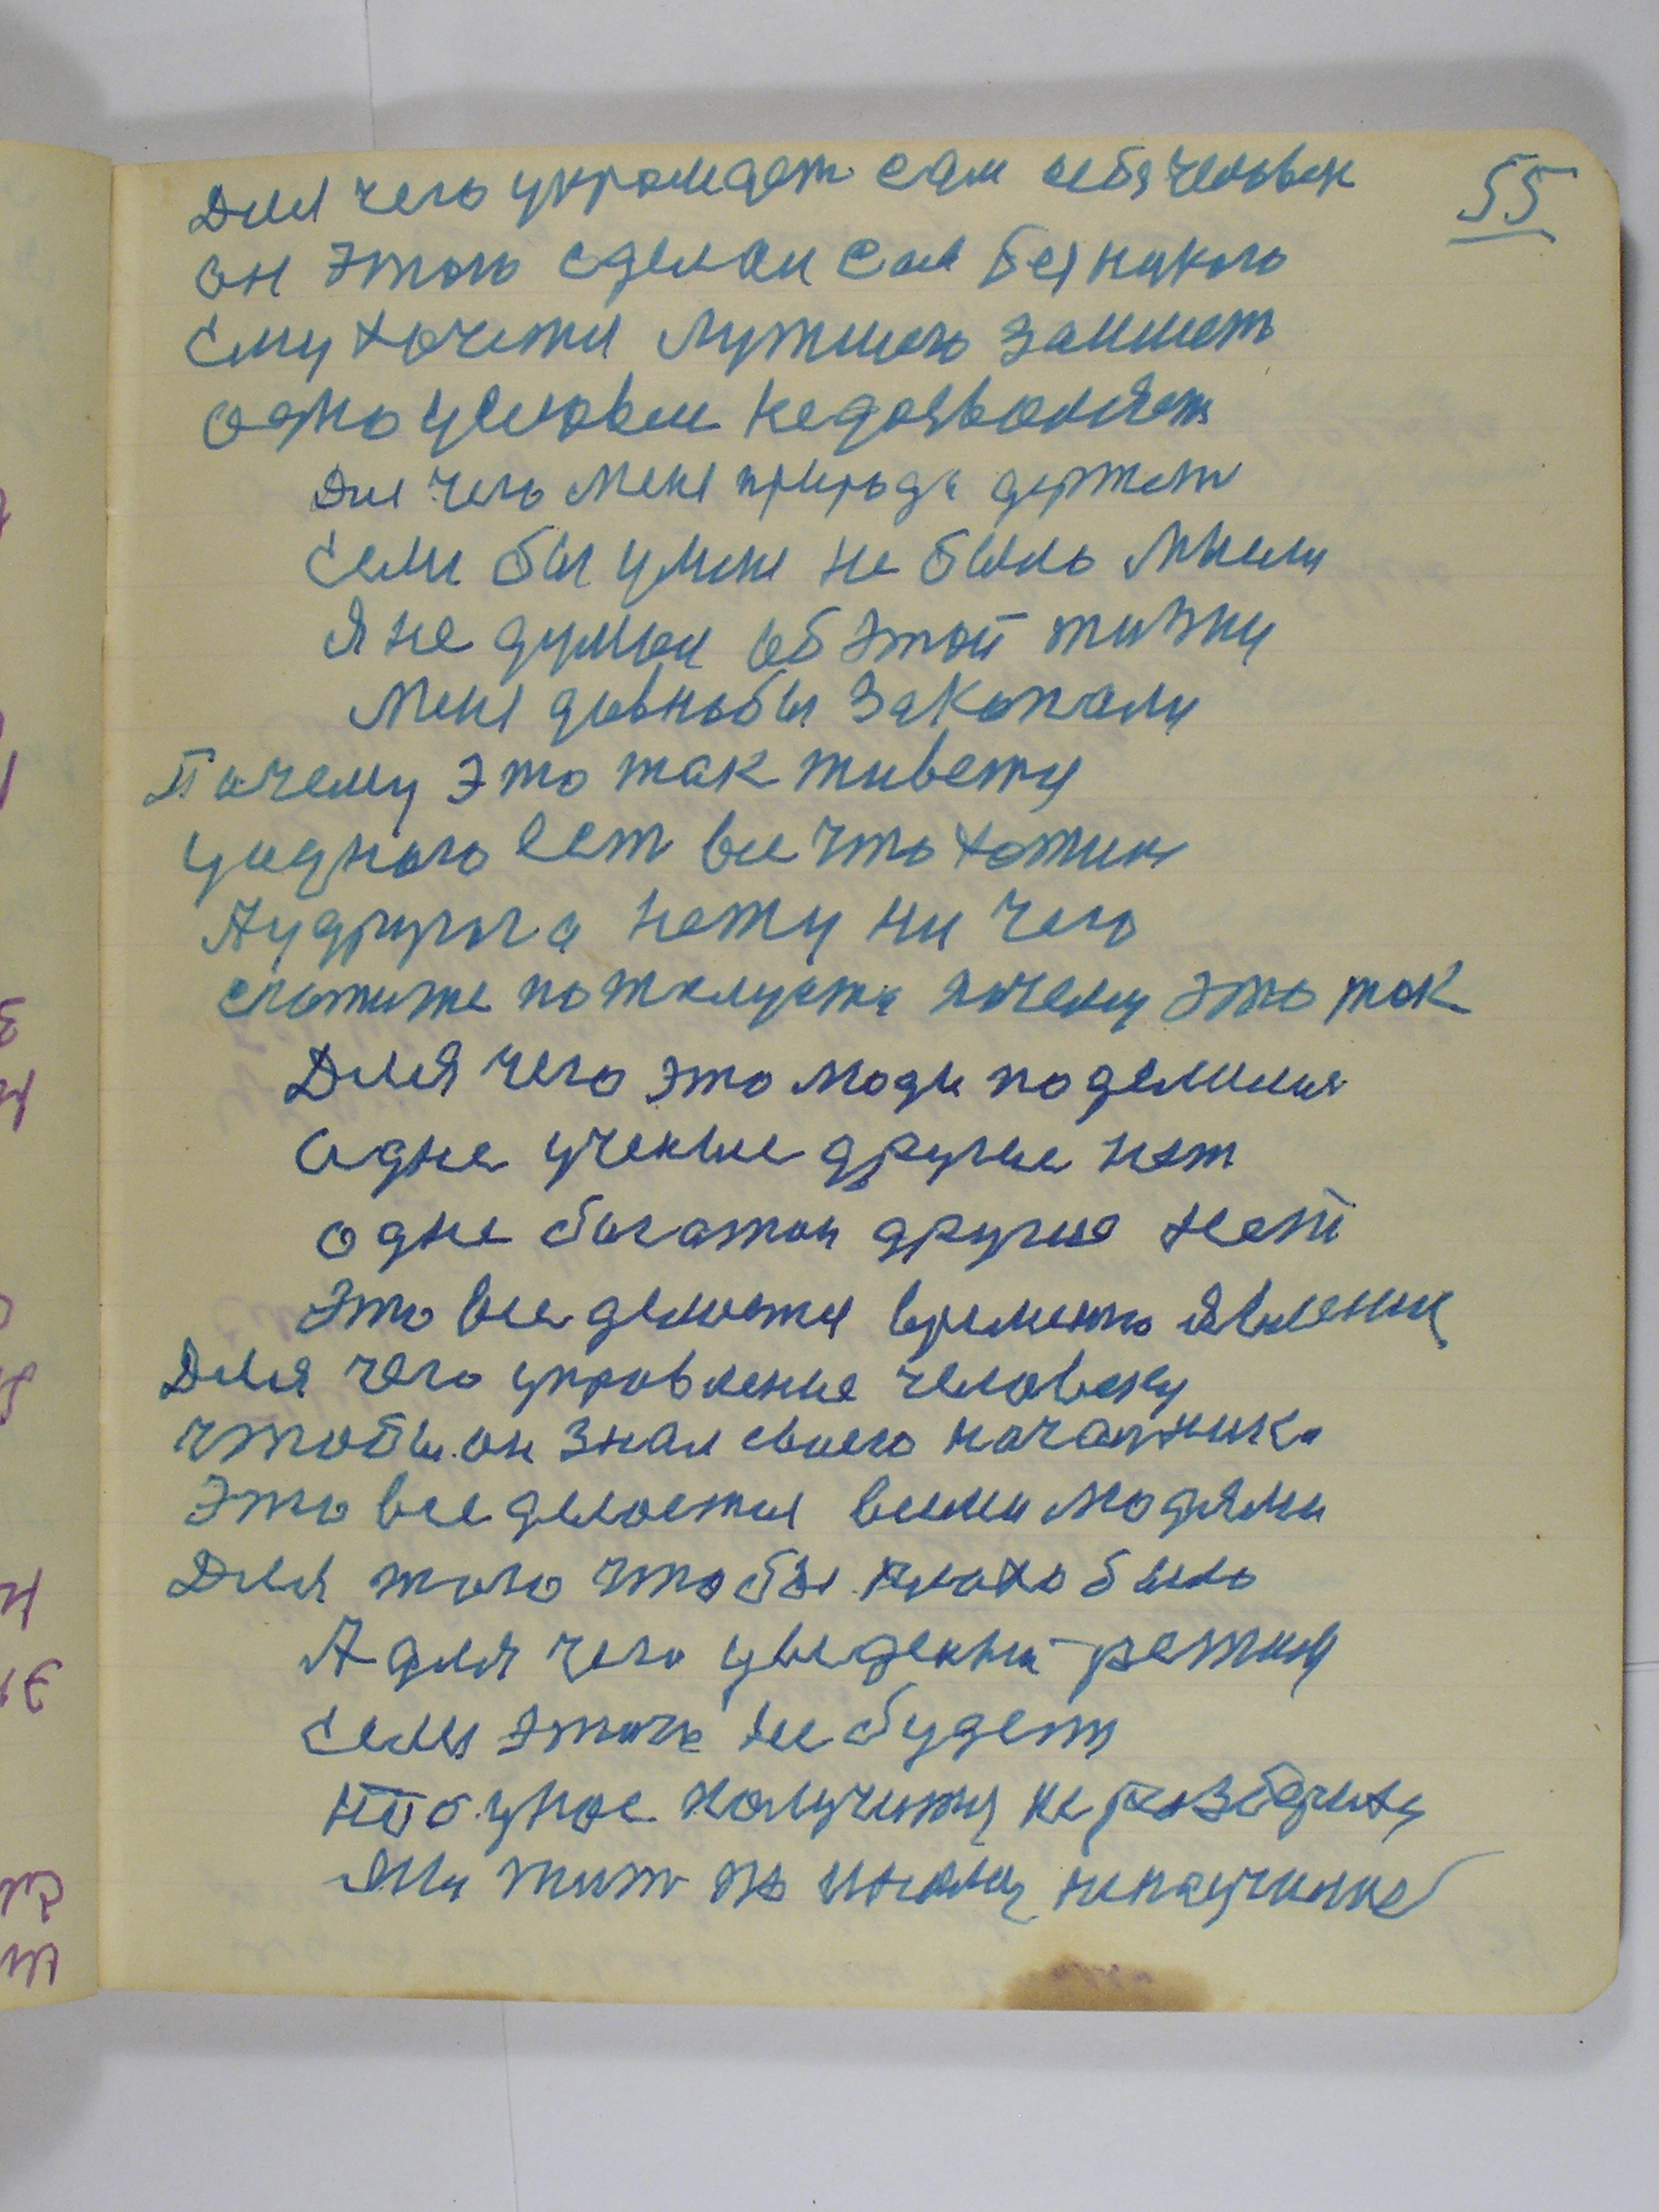 55
Для чего украшает сам себя человек
он этого сделал сам без никого
Ему хочется лутшего занимать
одно условие недозволяет
Для чего меня природа держит
Если бы у меня не было мысли
Я не думал об этой жизни
Меня давнобы закопали
Почему это так живется
Уодного есть все что хотит
Аудругога нету ни чего
скажите пожалуста почему это так
Для чего это люди поделился
Одне ученые другие нет
Одне богатои другие нет
Это все делается временно явлению
Для чего управление человеку
чтобы он знал своего начальника
Это все делается всеми людями
Для того чтобы плохо было
А для чего уведенный режим
Если этого не будет
то у нас получится не разбериха
Мы жить по иному ненаучимся